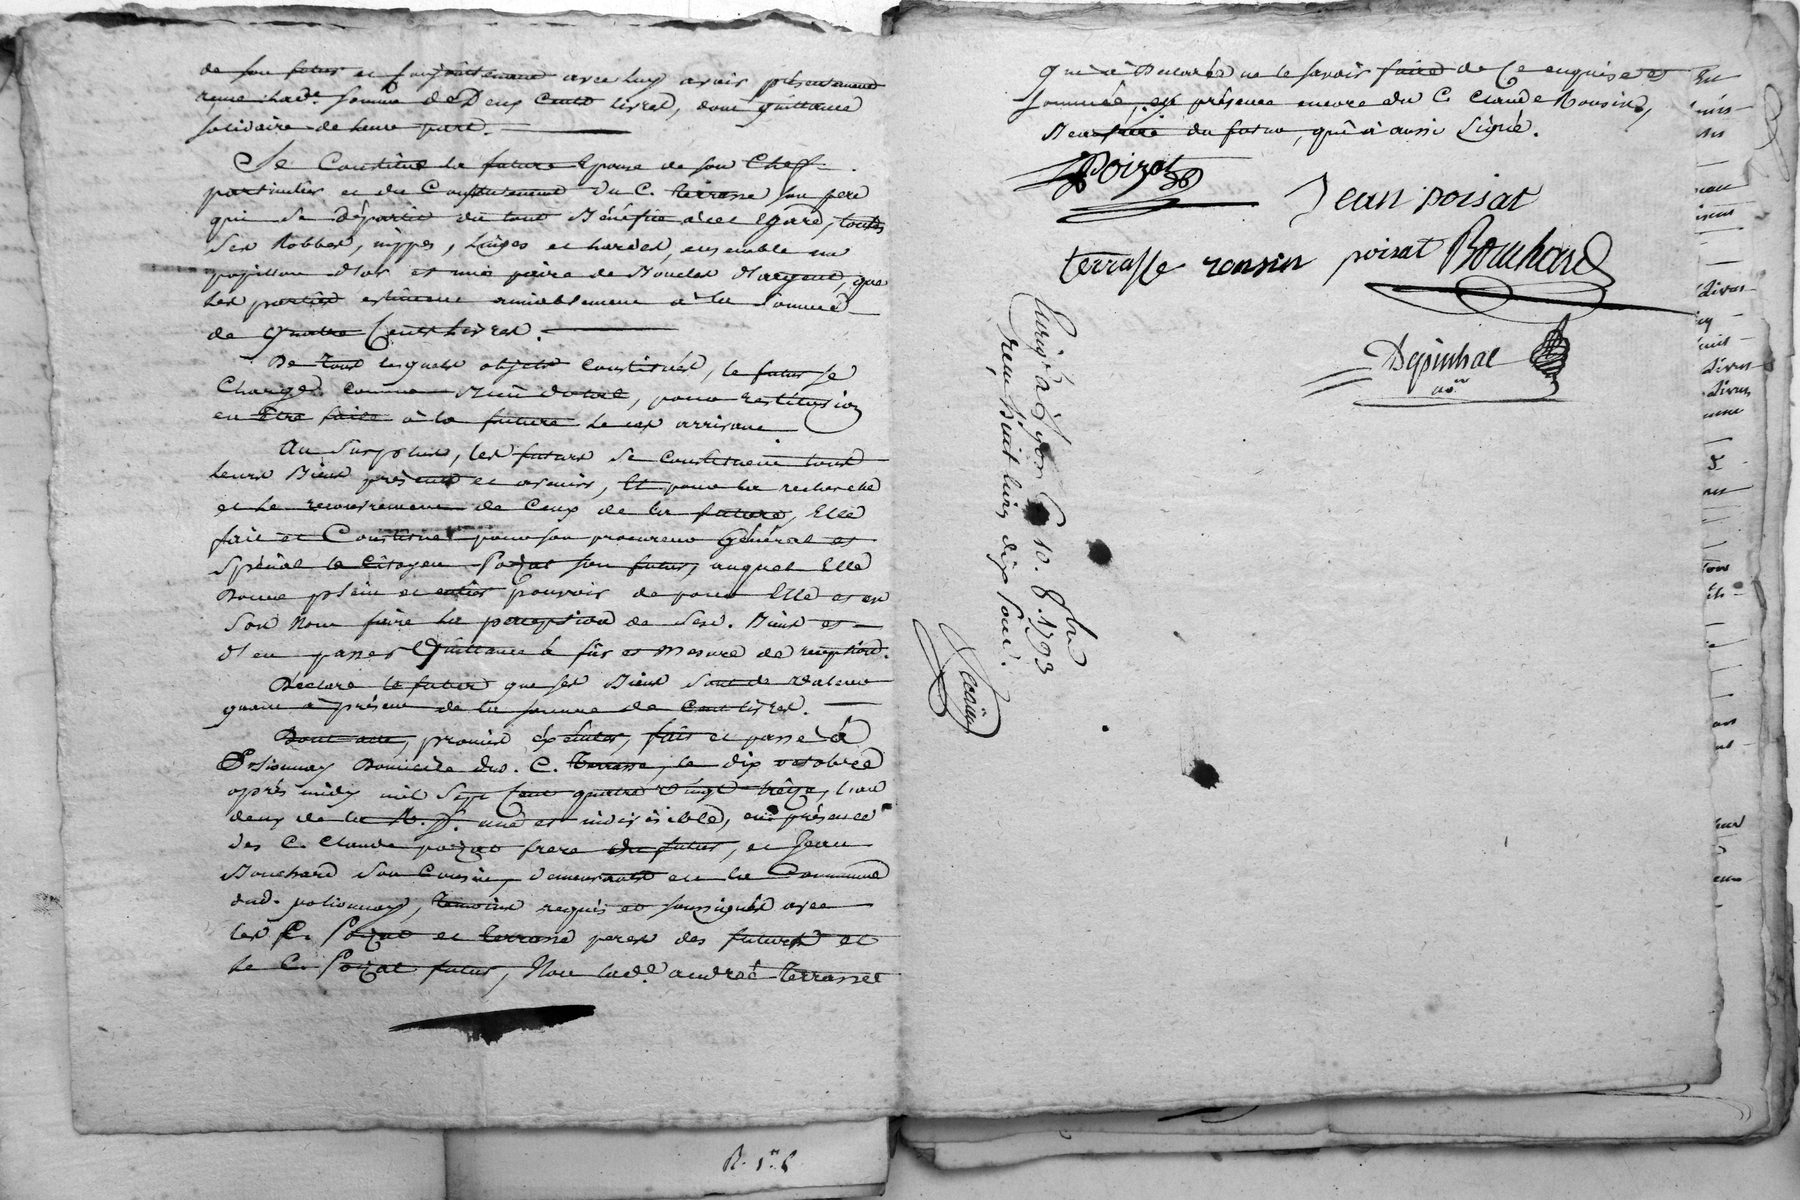 de son futur et conjointement avec luy avoir présentement
reçue lad.e somme de Deux Cents livres, dont quittance
solidaire de leur part.
Se Constitue la future Epouse de son Chef
particulier et du Consentement du C. terrasse son pere
qui se départit du tout Bénéfice à cet Egard, toutes
ses Robbes, nippes, linges et hardes, ensemble un
papillon d'or et une paire de Boucles d'argent, que
les parties estiment amiablement à la somme
de quatre Cents livres.
De tous lesquels objets constitués, le futur se
Charge comme Bien dotal, pour restitution
en Etre faite à la future le cas arrivant
Au Surplus, les futurs se constituent tous
leurs Biens présents et avenirs, Et pour la recherche
et le recouvrement de Ceux de la future, Elle
fait et Constitue pour son procureur Général et
Spécial le Citoyen Poizat son futur, auquel Elle
Donne plein et entier pouvoir de pour Elle et en
Son Nom faire la perception de Ses. Biens et
d'en passer Quittance à fur et Mesure de reception.
Déclare le futur que ses Biens sont de valeur
quant à présent de la somme de Cent livres.
Dont acte, promis éxécuter, fait et passé à
Polionnay Domicile du. C. terrasse, le dix octobre
après midy mil Sept Cent quatre Vingt treize, l'an
deux de la R. f. une et indivisible, en présence
des C. Claude poizat frere du futur, et Jean
Bouchard son Cousin, demeurants en la Commune
dud. polionnay, témoins requis et soussignés avec
les C. Poizat et terrasse peres des futurs et
le C. Poizat futur, Non lad.e andrée terrasse
qui a Déclaré ne le savoir faire de Ce enquise et
sommée, en présence encore du C. Claude Ronsin,
du futur, qui a aussi Signé.
Poizat
Jean poisat
terrasse ronsin poisat Bouchard
Depinhac
Enrg.é à Lyon le 10. 8.bre 1793
reçu huit livres dix sous.
R. 1.er 6